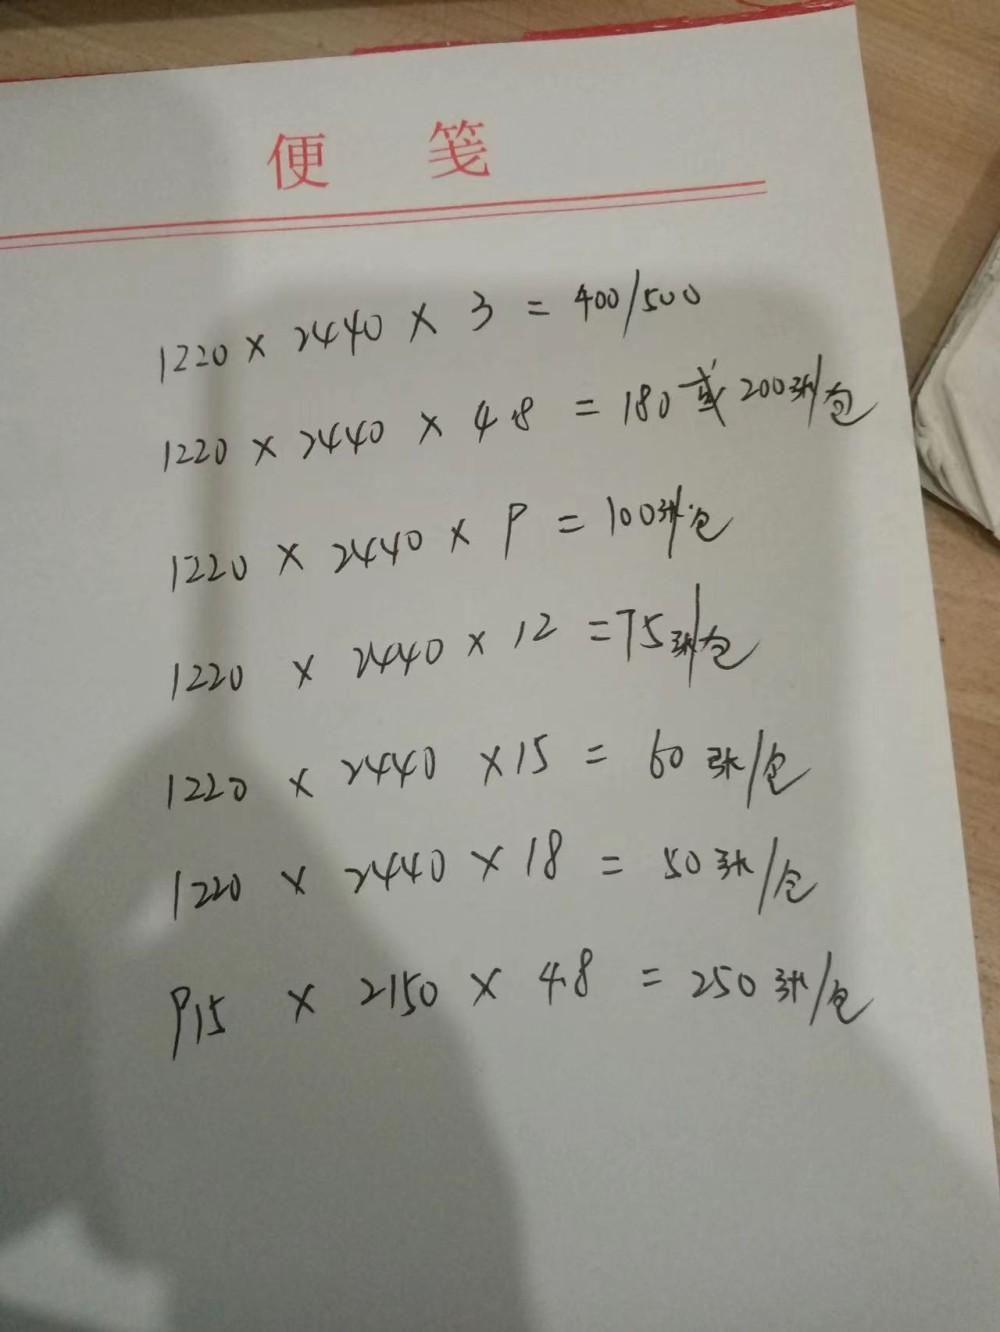 便 笺
1220 × 2440 × 3 = 400/500
1220 × 2440 × 4.8 = 180 或 200张/包
1220 × 2440 × 9 = 100张/包
1220 × 2440 × 12 = 75张/包
1220 × 2440 × 15 = 60张/包
1220 × 2440 × 18 = 50张/包
915 × 2150 × 4.8 = 250张/包